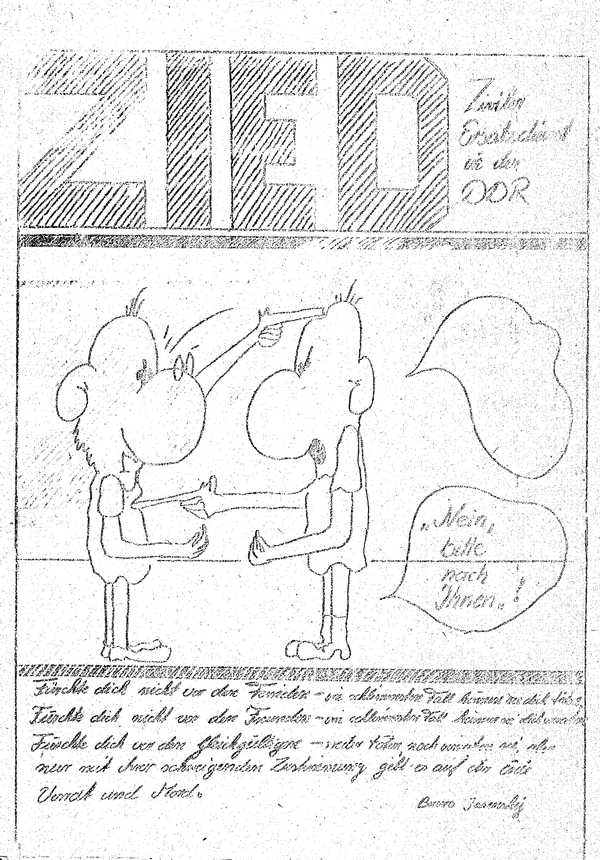 ZIED
Ersatzdienst
in der
DDR
„Nein,
bitte
nach
Ihnen“!
Fürchte dich nicht vor den Feinden – im schlimmsten Fall können sie dich töten,
Fürchte dich nicht vor den Freunden – im schlimmsten Fall können sie dich verraten
Fürchte dich vor den Gleichgültigen – weder töten, noch verraten sie, aber
nur mit ihrer schweigenden Zustimmung gibt es auf der Erde
Verrat und Mord.
Bruno